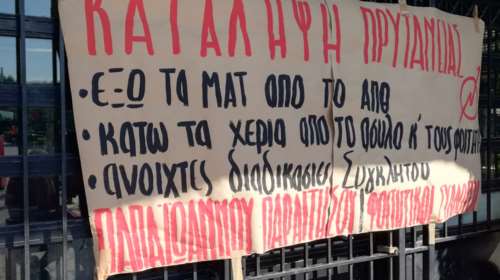 ΚΑΤΑΛΗΨΗ ΠΡΥΤΑΝΕΙΑΣ
• ΕΞΩ ΤΑ ΜΑΤ ΑΠΟ ΤΟ ΑΠΘ
• ΚΑΤΩ ΤΑ ΧΕΡΙΑ ΑΠΟ ΤΟ ΑΣΥΛΟ Κ' ΤΟΥΣ ΦΟΙΤΗΤ
• ΑΝΟΙΧΤΕΣ ΔΙΑΔΙΚΑΣΙΕΣ ΣΥΓΚΛΗΤΟΥ
ΠΑΠΑΪΩΑΝΝΟΥ ΠΑΡΑΙΤΗΣΟΥ ΦΟΙΤΗΤΙΚΟΙ ΣΥΛΛΟΓΟΙ